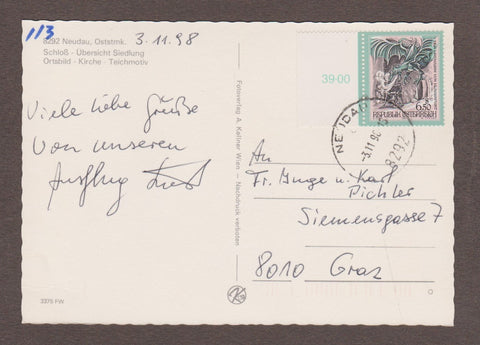 1/3
8292 Neudau, Oststmk.
3.11.98
Schloß - Übersicht Siedlung
Ortsbild - Kirche - Teichmotiv
Viele liebe Grüße
von unseren
Ausflug
Fotoverlag A. Kellner Wien — Nachdruck verboten
39·00
6,50
REPUBLIK ÖSTERREICH
NEUDAU
-3.11.98
8292
An
Fr. Inge u. Karl
Pichler
Siemensgasse 7
8010 Graz
3375 FW